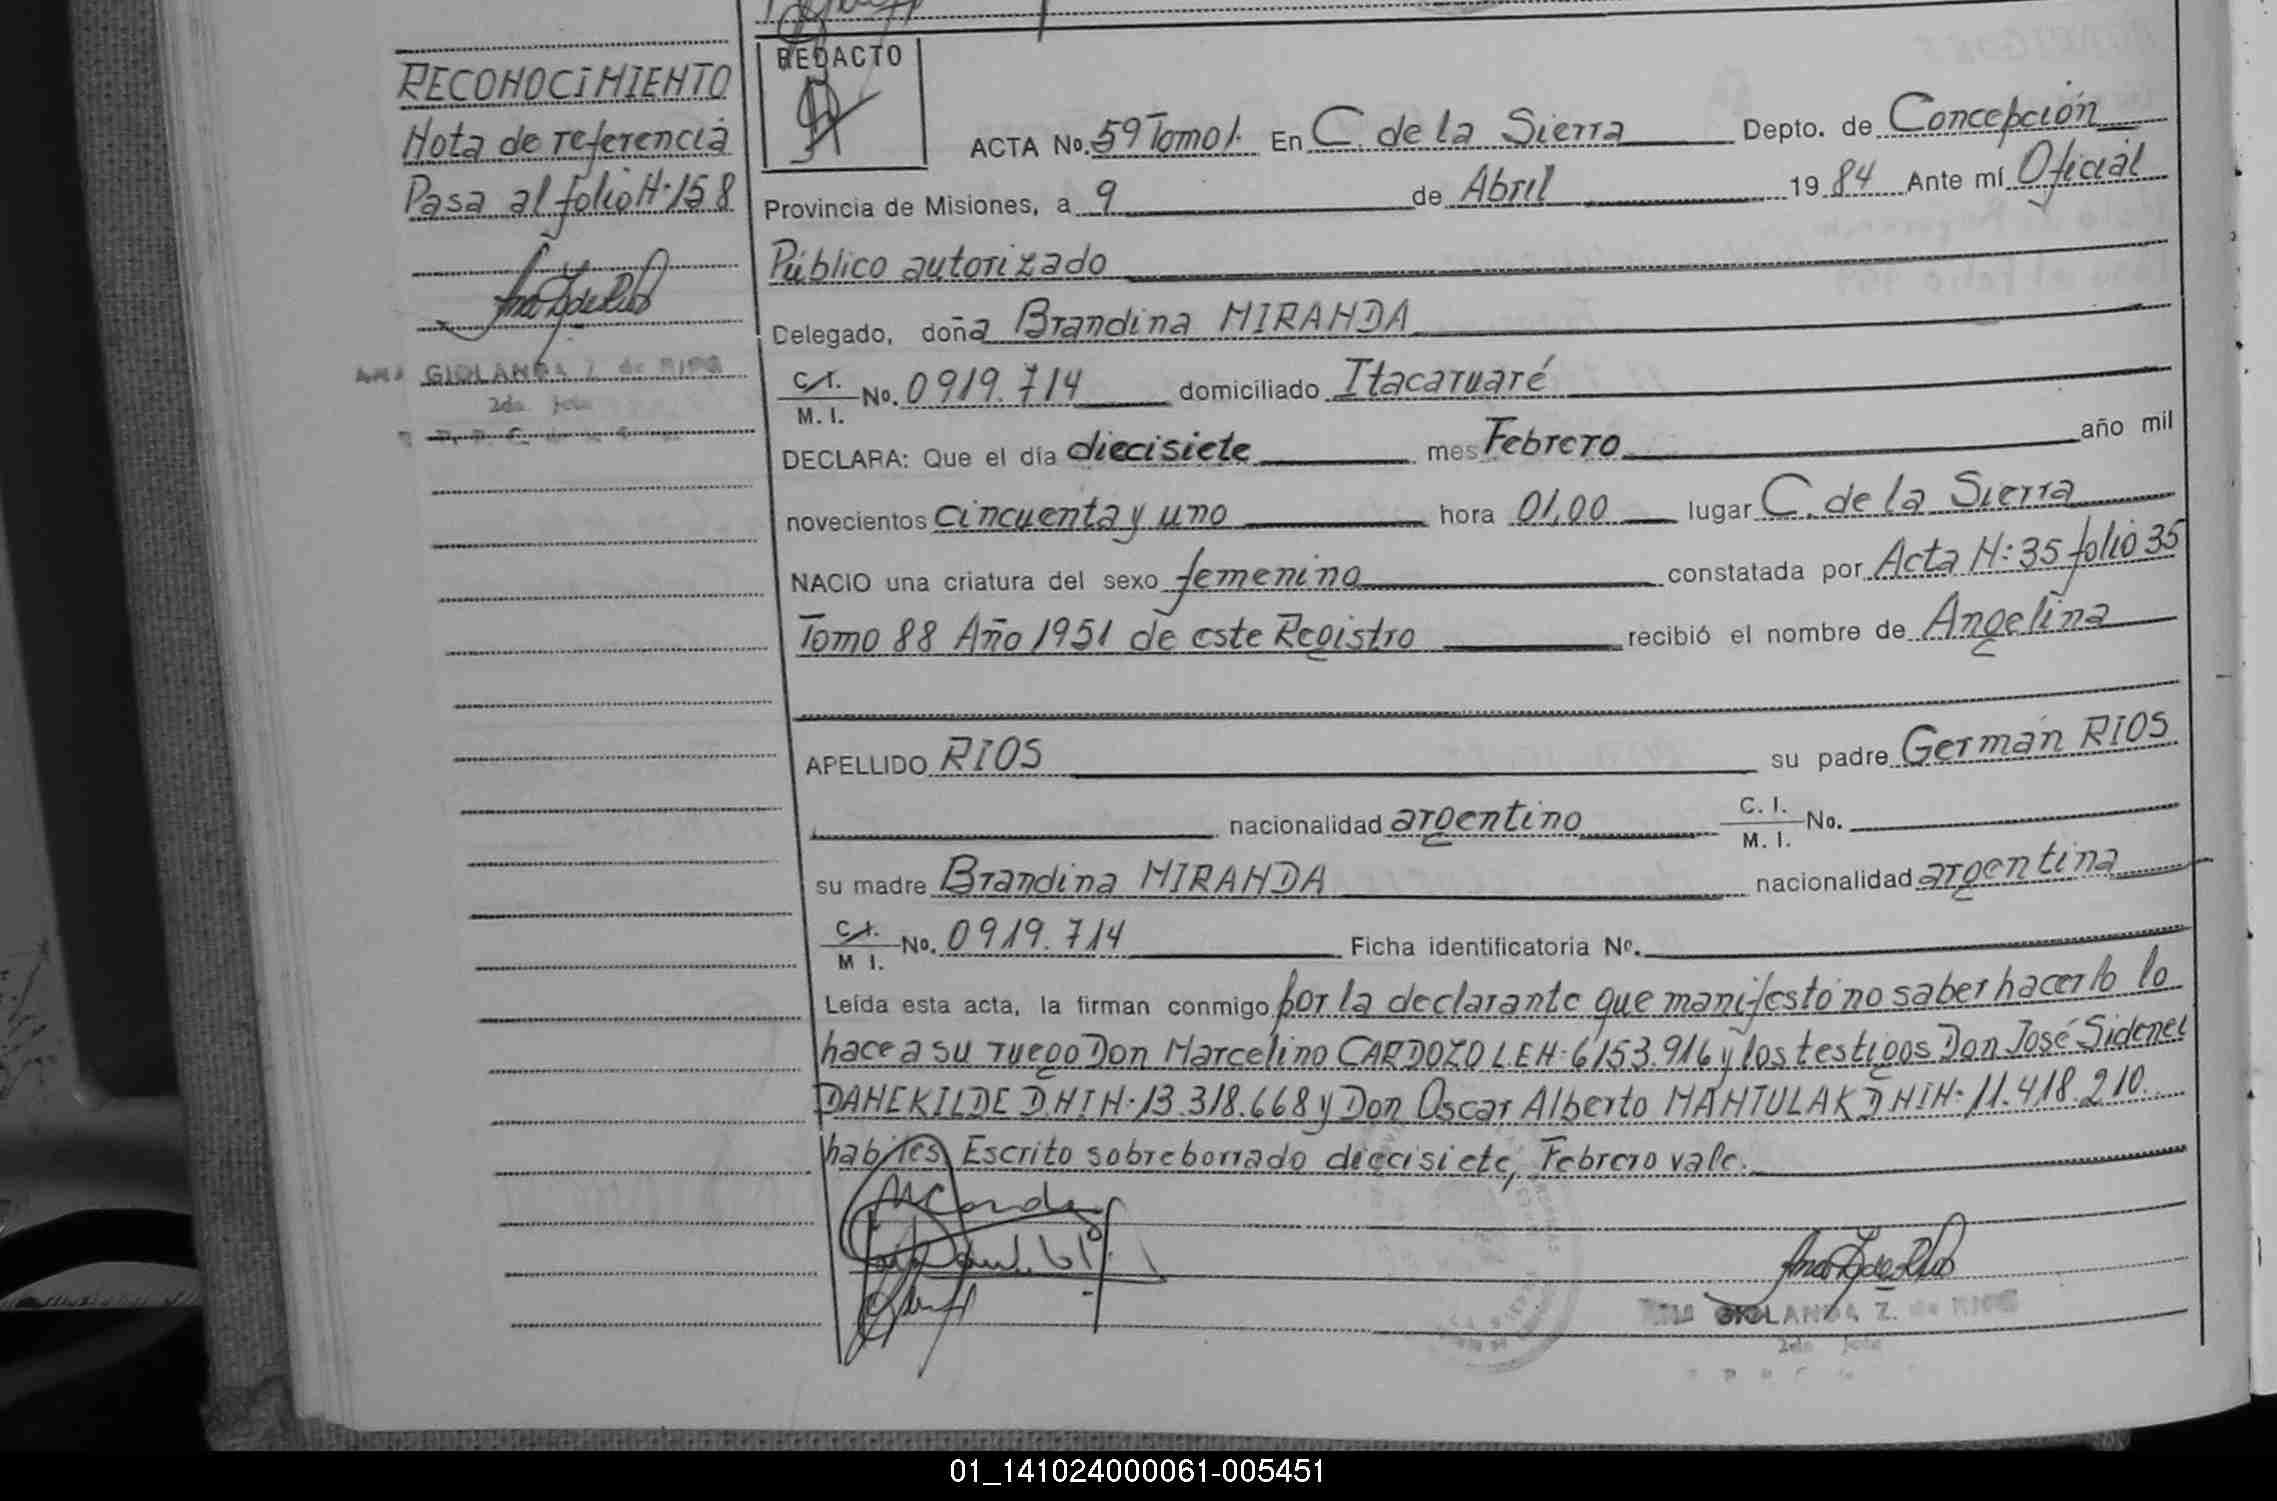 RECONOCIMIENTO
Nota de referencia
Pasa al folio N: 158
GIOLANDA Z. de RIOS
2do Jefe
REDACTO
ACTA No. 59 Tomo 1. En C. de la Sierra Depto. de Concepción
Provincia de Misiones, a 9 de Abril 1984 Ante mí Oficial
Público autorizado
Delegado, doña Brandina MIRANDA
C.I. M.I. No. 0919.714 domiciliado Itacaruaré
DECLARA: Que el día diecisiete mes Febrero año mil
novecientos cincuenta y uno hora 01,00 lugar C. de la Sierra
NACIO una criatura del sexo femenino constatada por Acta N: 35 folio 35
Tomo 88 Año 1951 de este Registro recibió el nombre de Angelina
APELLIDO RIOS su padre Germán RIOS
nacionalidad argentino C. I. M. I. No.
su madre Brandina MIRANDA nacionalidad argentina
C.I. M I. No. 0919.714 Ficha identificatoria No.
Leída esta acta, la firman conmigo por la declarante que manifestó no saber hacerlo lo
hace a su ruego Don Marcelino CARDOZO L.E.N: 6153.916 y los testigos Don José Sidenei
DANEKILDE D.N.I N: 13.318.668 y Don Oscar Alberto MANTULAK D.N.I N: 11.418.210.
habiles Escrito sobre borrado diecisiete, Febrero vale.
GIOLANDA Z. de RIOS
2do Jefe
01_141024000061-005451